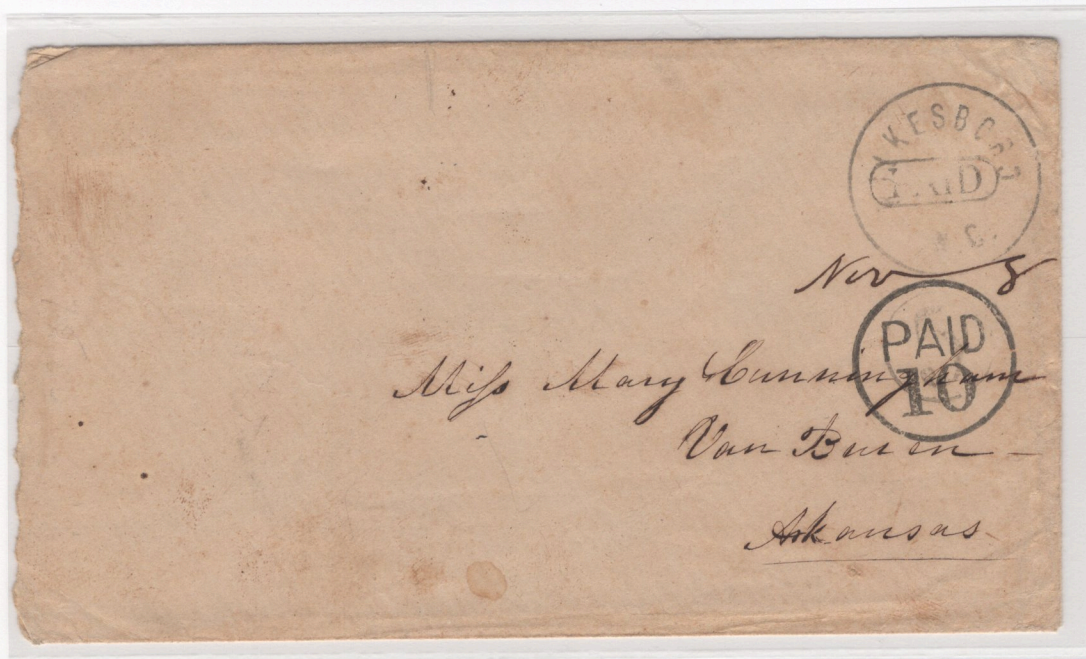 PAID
N.C.
Nov 8
PAID
10
Miss Mary Cunningham
Van Buren
Arkansas